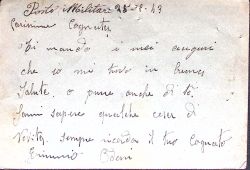 Posta Militare 25-8-43
Carissimo Cognato,
Ti mando i miei auguri
che io mi trovo in buona
Salute, e pure anche di te.
Fami sapere qualche cosa di
Novità, sempre ricorda il tuo Cognato